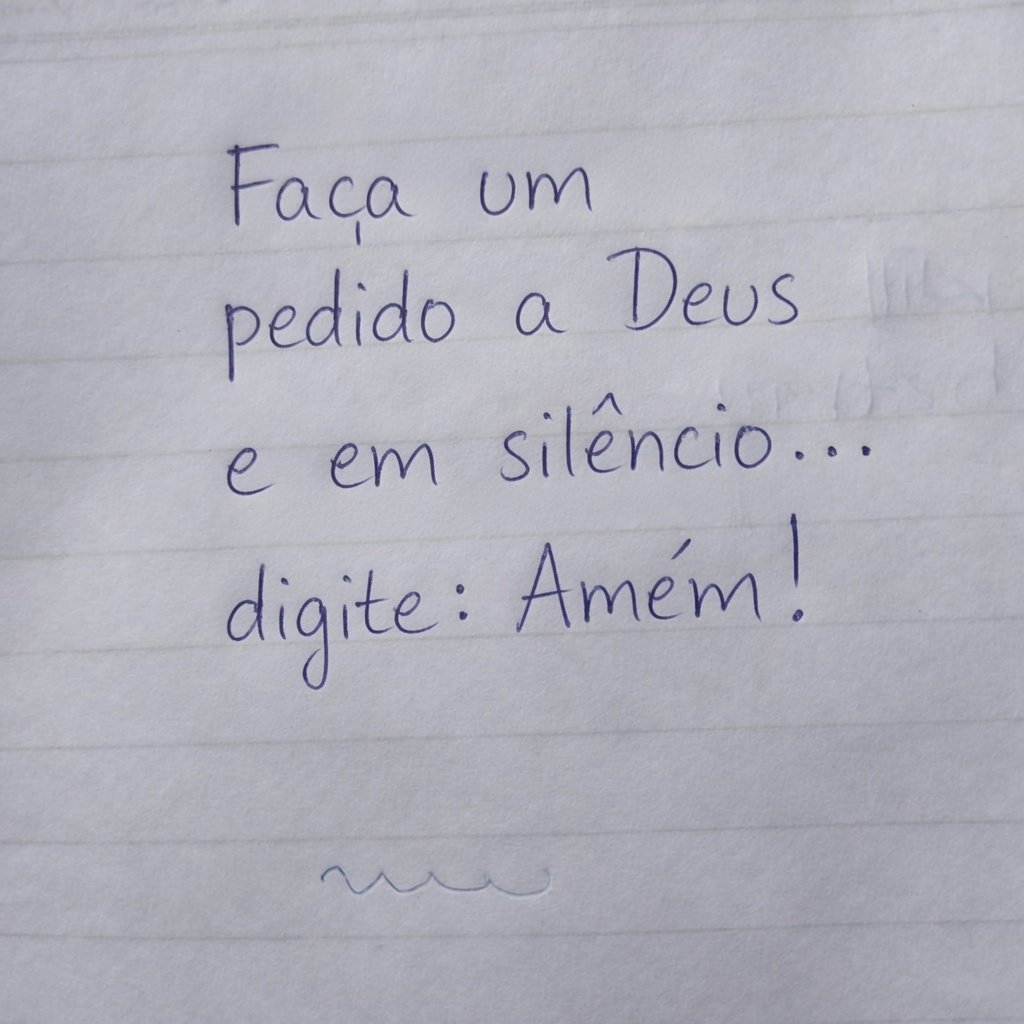 Faça um
pedido a Deus
e em silêncio...
digite: Amém!